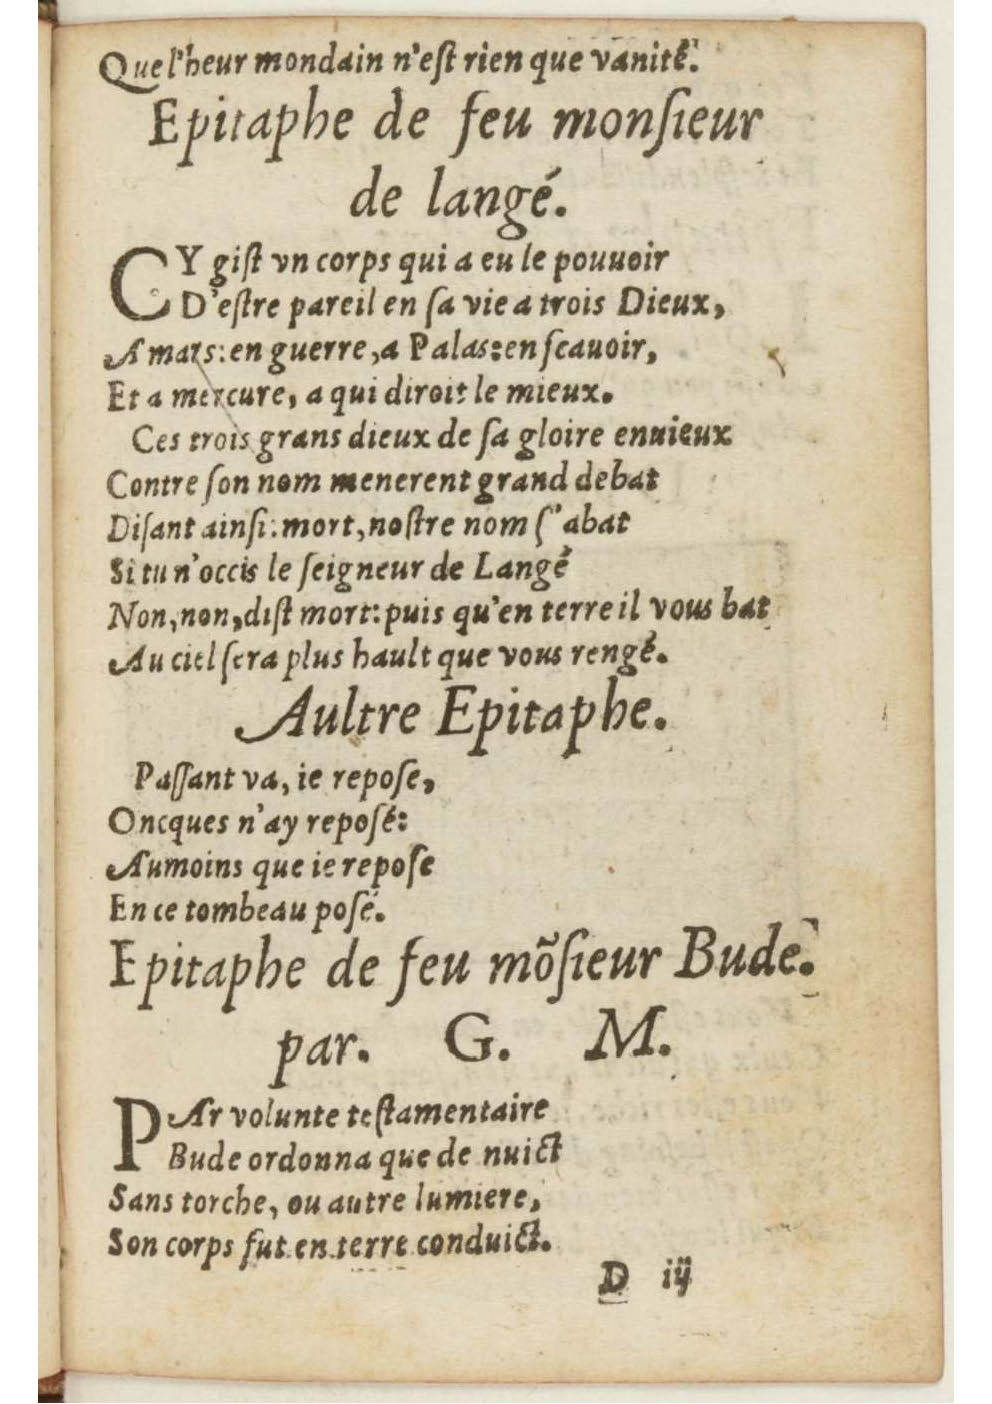 Que l'heur mondain n'eſt rien que vanité.
Epitaphe de feu monſieur
de langé.
CY giſt vn corps qui a eu le pouuoir
D'eſtre pareil en ſa vie a trois Dieux,
A mars: en guerre, a Palas: en ſcauoir,
Et a mercure, a qui diroit le mieux.
Ces trois grans dieux de ſa gloire enuieux
Contre ſon nom menerent grand debat
Diſant ainſi: mort, noſtre nom ſ'abat
Si tu n'occis le ſeigneur de Langé
Non, non, diſt mort: puis qu'en terre il vous bat
Au ciel ſera plus hault que vous rengé.
Aultre Epitaphe.
Paſſant va, ie repoſe,
Oncques n'ay repoſé:
Aumoins que ie repoſe
En ce tombeau poſé.
Epitaphe de feu mõſieur Bude.
par. G. M.
PAr volunte teſtamentaire
Bude ordonna que de nuict
Sans torche, ou autre lumiere,
Son corps fut en terre conduict.
D iij